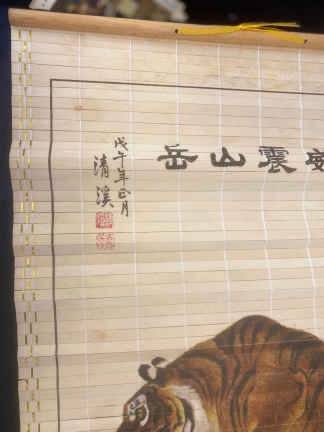 威震山岳
戊午年正月
清溪